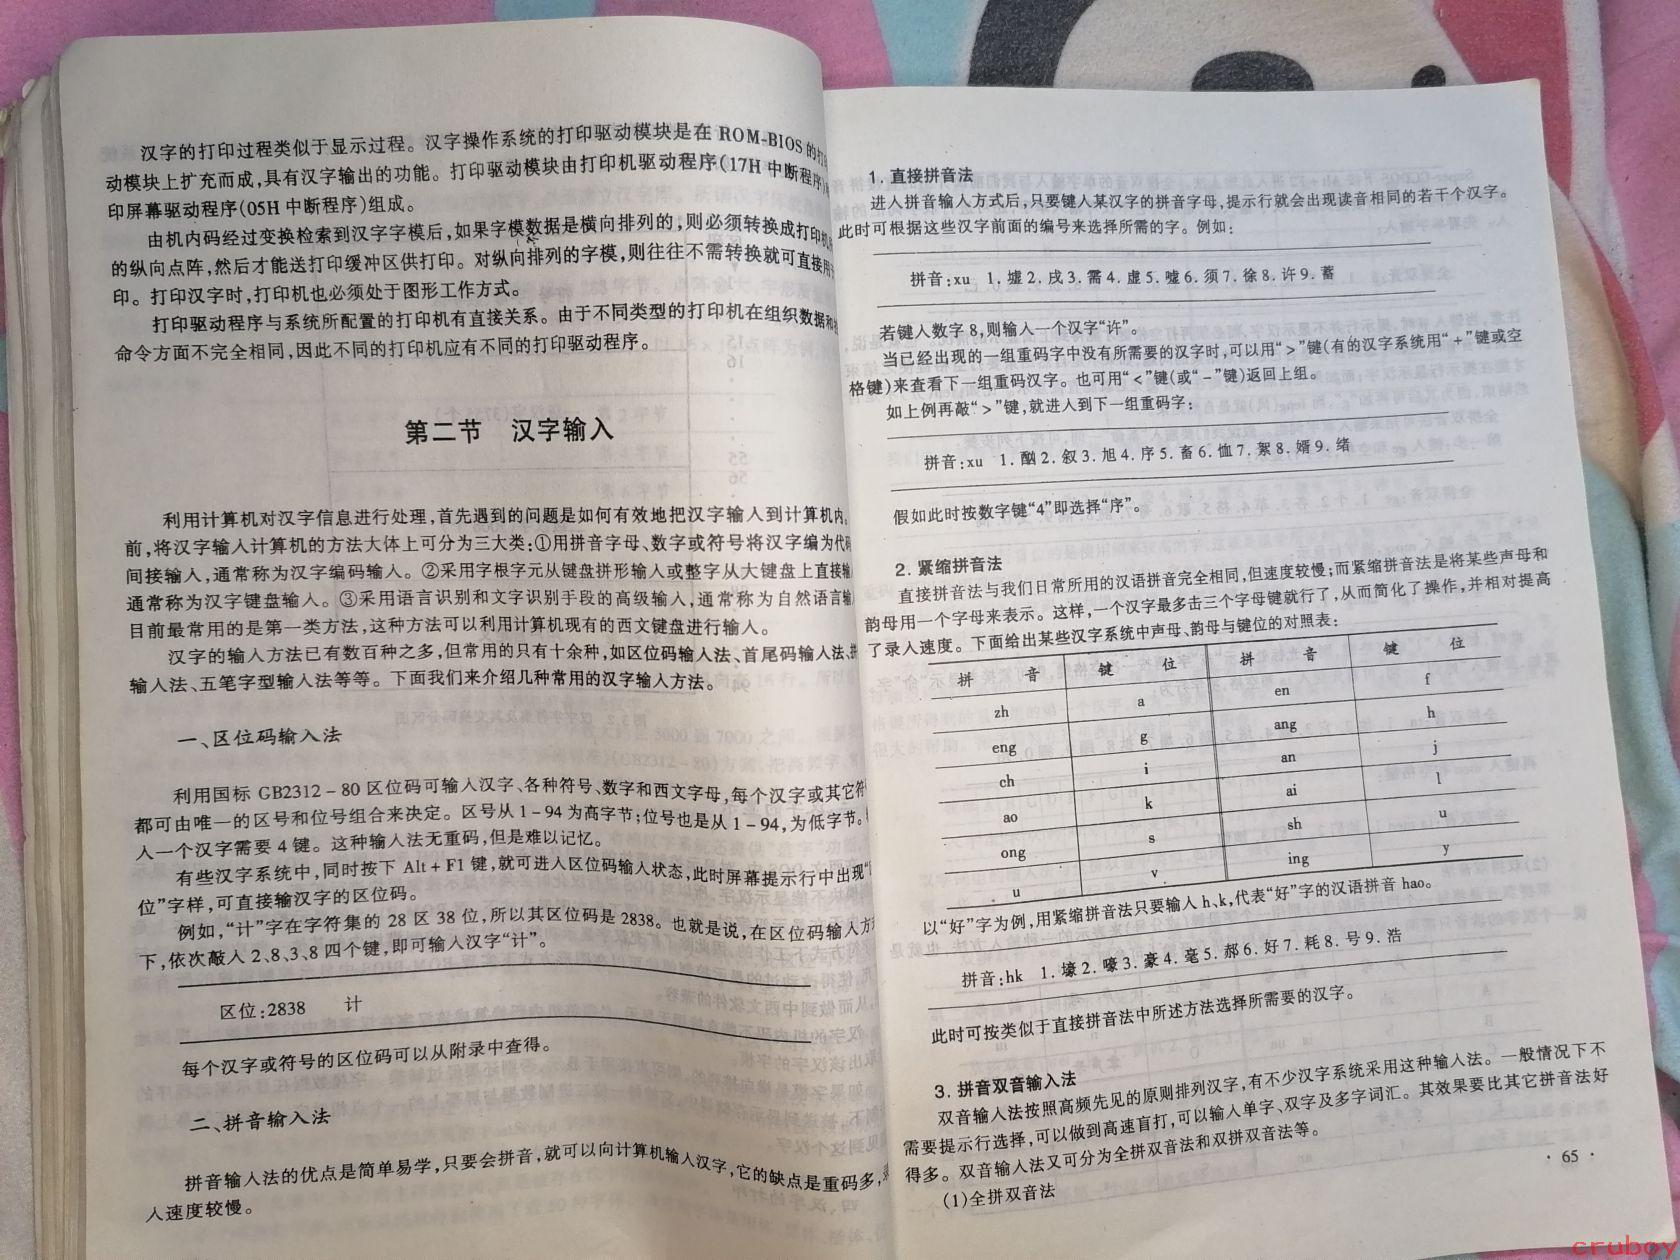 汉字的打印过程类似于显示过程。汉字操作系统的打印驱动模块是在 ROM-BIOS 的打
动模块上扩充而成,具有汉字输出的功能。打印驱动模块由打印机驱动程序(17H 中断程序)
印屏幕驱动程序(05H 中断程序)组成。
由机内码经过变换检索到汉字字模后,如果字模数据是横向排列的,则必须转换成打印机
的纵向点阵,然后才能送打印缓冲区供打印。对纵向排列的字模,则往往不需转换就可直接用
印。打印汉字时,打印机也必须处于图形工作方式。
打印驱动程序与系统所配置的打印机有直接关系。由于不同类型的打印机在组织数据和
命令方面不完全相同,因此不同的打印机应有不同的打印驱动程序。
第二节 汉字输入
利用计算机对汉字信息进行处理,首先遇到的问题是如何有效地把汉字输入到计算机内。
前,将汉字输入计算机的方法大体上可分为三大类:①用拼音字母、数字或符号将汉字编为代码
间接输入,通常称为汉字编码输入。②采用字根字元从键盘拼形输入或整字从大键盘上直接输
通常称为汉字键盘输入。③采用语言识别和文字识别手段的高级输入,通常称为自然语言输
目前最常用的是第一类方法,这种方法可以利用计算机现有的西文键盘进行输入。
汉字的输入方法已有数百种之多,但常用的只有十余种,如区位码输入法、首尾码输入法、拼
输入法、五笔字型输入法等等。下面我们来介绍几种常用的汉字输入方法。
一、区位码输入法
利用国标 GB2312-80 区位码可输入汉字、各种符号、数字和西文字母,每个汉字或其它符
都可由唯一的区号和位号组合来决定。区号从 1-94 为高字节;位号也是从 1-94,为低字节。
入一个汉字需要 4 键。这种输入法无重码,但是难以记忆。
有些汉字系统中,同时按下 Alt+F1 键,就可进入区位码输入状态,此时屏幕提示行中出现“
位”字样,可直接输汉字的区位码。
例如,“计”字在字符集的 28 区 38 位,所以其区位码是 2838。也就是说,在区位码输入方
下,依次敲入 2、8、3、8 四个键,即可输入汉字“计”。
区位:2838 计
每个汉字或符号的区位码可以从附录中查得。
二、拼音输入法
拼音输入法的优点是简单易学,只要会拼音,就可以向计算机输入汉字,它的缺点是重码多,
入速度较慢。
1. 直接拼音法
进入拼音输入方式后,只要键入某汉字的拼音字母,提示行就会出现读音相同的若干个汉字。
此时可根据这些汉字前面的编号来选择所需的字。例如:
拼音:xu 1. 墟2. 戌3. 需4. 虚5. 嘘6. 须7. 徐8. 许9. 蓄
若键入数字 8,则输入一个汉字“许”。
当已经出现的一组重码字中没有所需要的汉字时,可以用“>”键(有的汉字系统用“+”键或空
格键)来查看下一组重码汉字。也可用“<”键(或“-”键)返回上组。
如上例再敲“>”键,就进入到下一组重码字:
拼音:xu 1. 酗2. 叙3. 旭4. 序5. 畜6. 恤7. 絮8. 婿9. 绪
假如此时按数字键“4”即选择“序”。
2. 紧缩拼音法
直接拼音法与我们日常所用的汉语拼音完全相同,但速度较慢;而紧缩拼音法是将某些声母和
韵母用一个字母来表示。这样,一个汉字最多击三个字母键就行了,从而简化了操作,并相对提高
了录入速度。下面给出某些汉字系统中声母、韵母与键位的对照表:
拼 音 键 位 拼 音 键 位
zh a en f
eng g ang h
ch i an j
ao k ai l
ong s sh u
u v ing y
以“好”字为例,用紧缩拼音法只要输入 h、k,代表“好”字的汉语拼音 hao。
拼音:hk 1. 壕2. 嚎3. 豪4. 毫5. 郝6. 好7. 耗8. 号9. 浩
此时可按类似于直接拼音法中所述方法选择所需要的汉字。
3. 拼音双音输入法
双音输入法按照高频先见的原则排列汉字,有不少汉字系统采用这种输入法。一般情况下不
需要提示行选择,可以做到高速盲打,可以输入单字、双字及多字词汇。其效果要比其它拼音法好
得多。双音输入法又可分为全拼双音法和双拼双音法等。
(1)全拼双音法
· 65 ·
cruboy